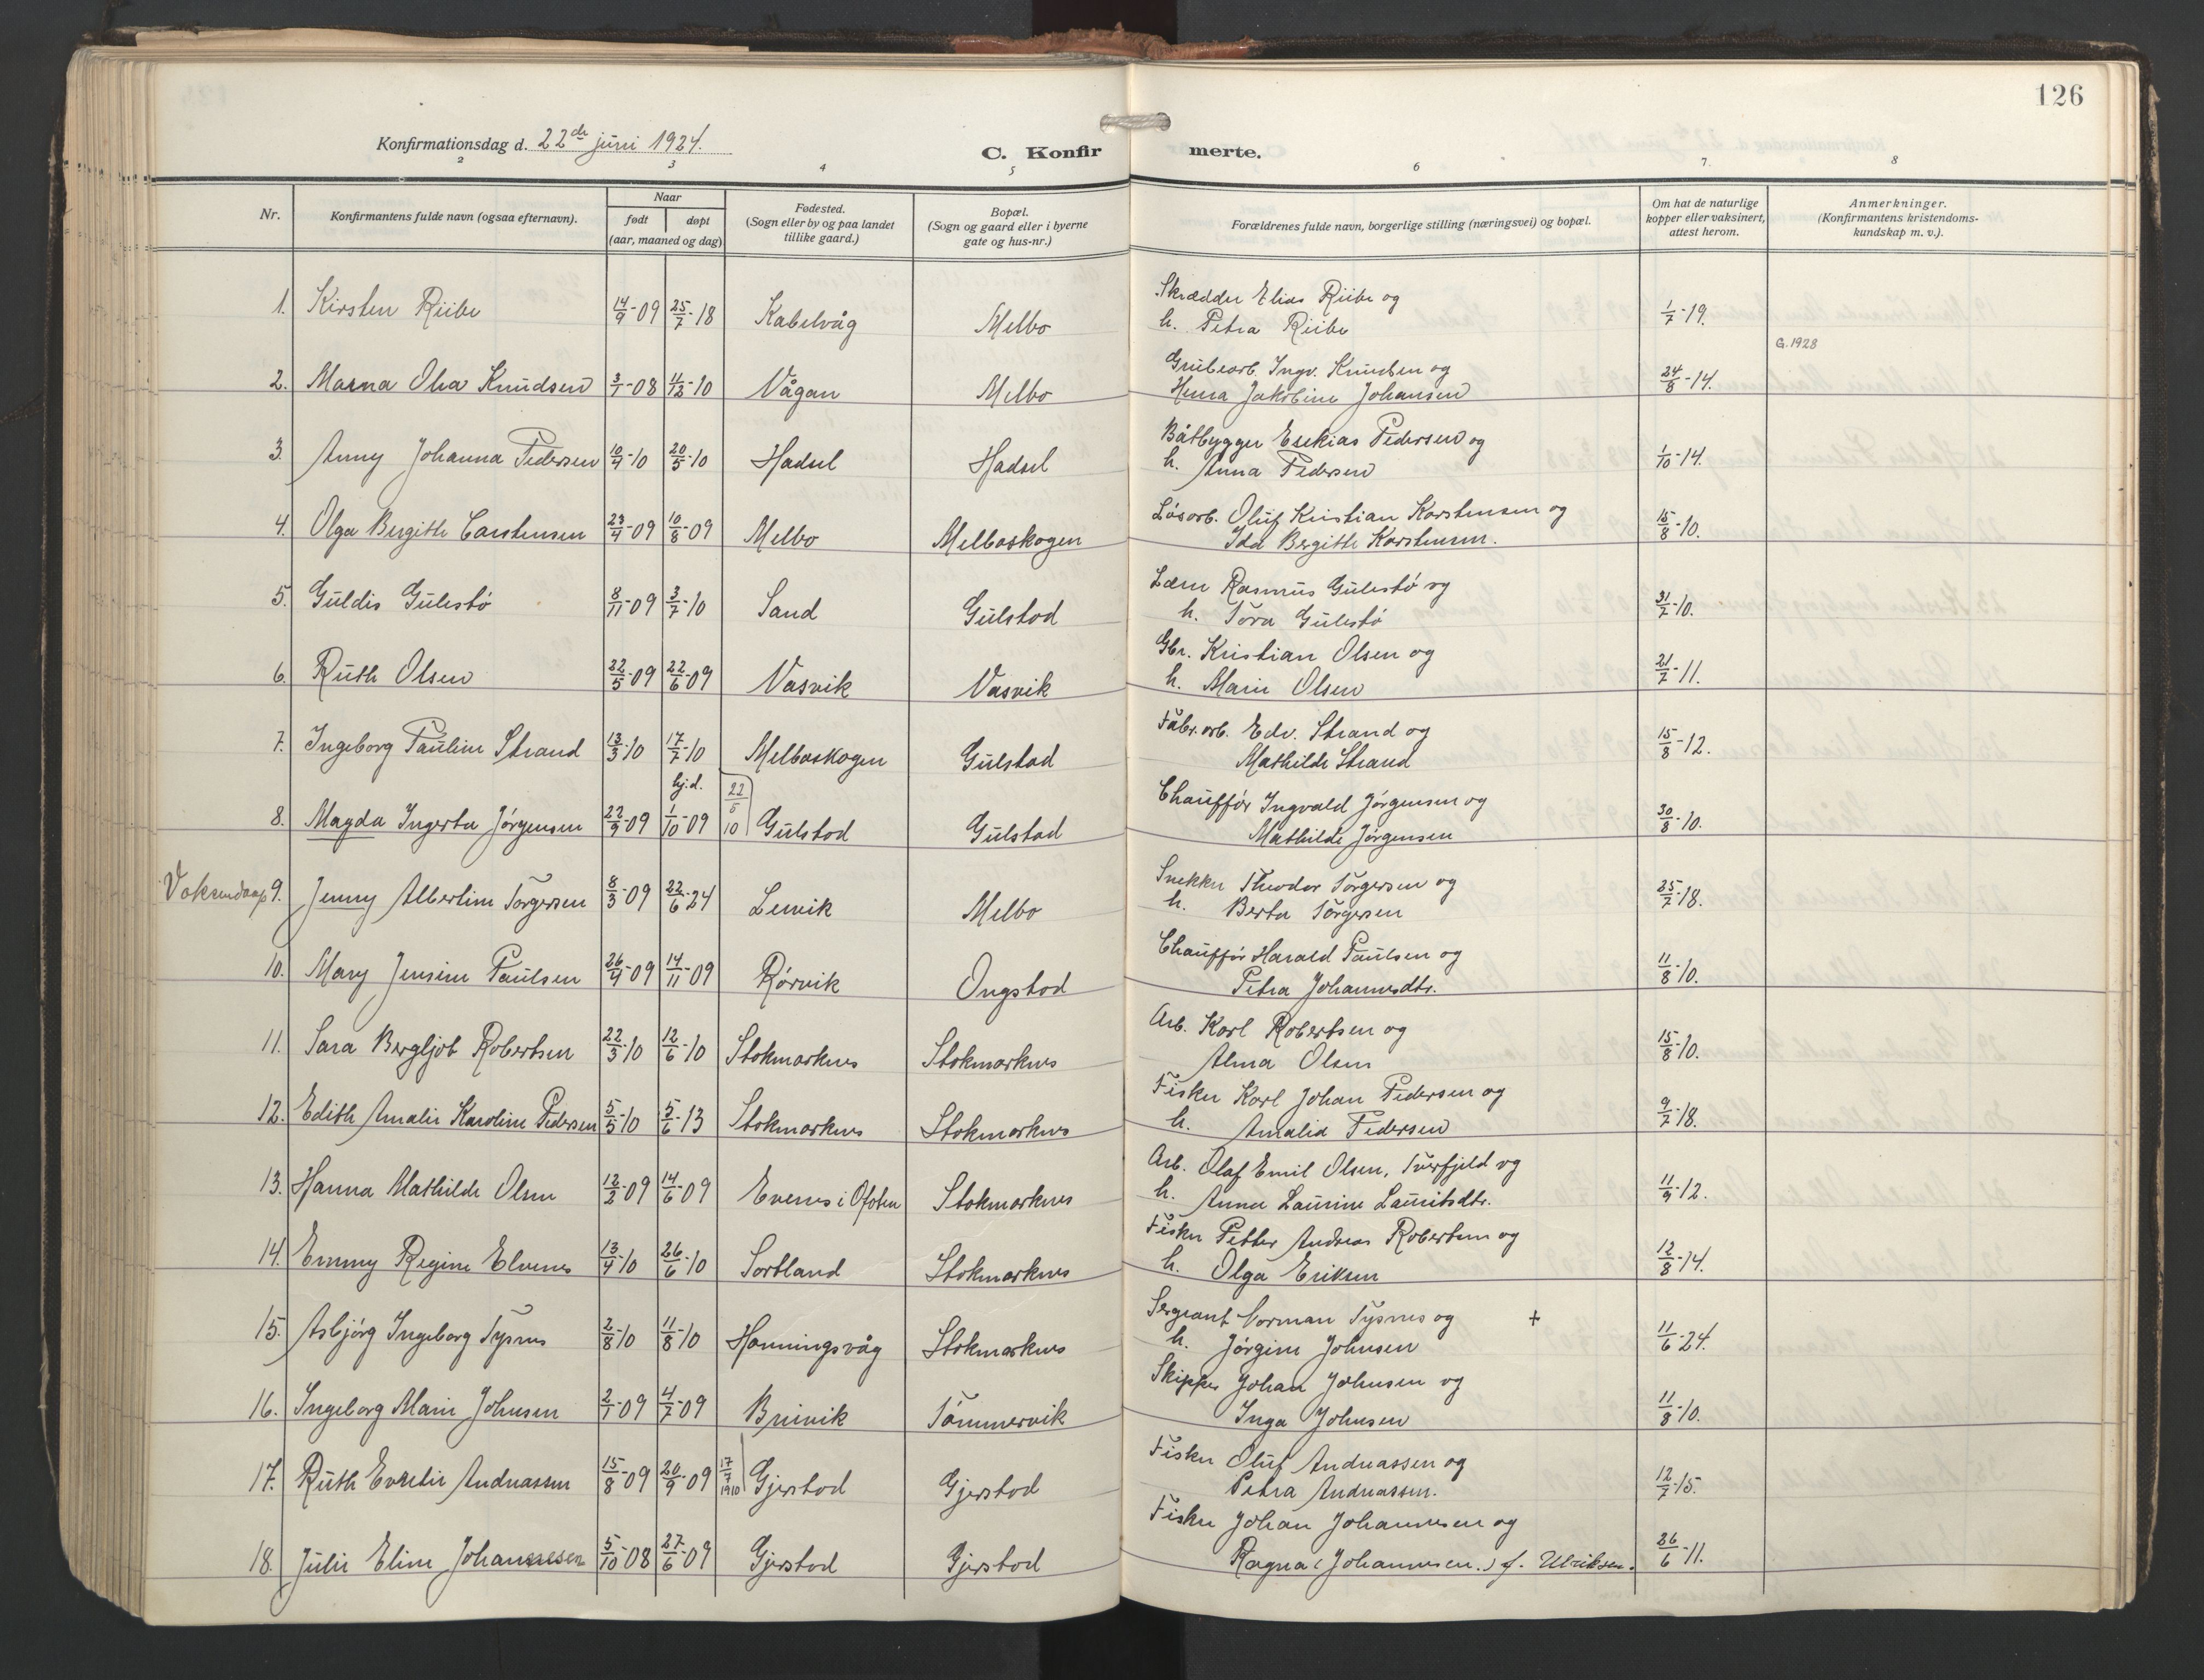 126
Konfirmationsdag d. 22de juni 1924.
C. Konfirmerte.
2 3 4 5 6 7. 8
Nr. Konfirmantens fulde navn (ogsaa efternavn). Naar født døpt (aar, maaned og dag) Fødested. (Sogn eller by og paa landet tillike gaard.) Bopæl. (Sogn og gaard eller i byerne gate og hus-nr.) Forældrenes fulde navn, borgerlige stilling (næringsvei) og bopæl. Om hat de naturlige kopper eller vaksinert, attest herom. Anmerkninger. (Konfirmantens kristendoms-kundskap m. v.).
1. Kirsten Riibe 14/9-09 25/7-18 Kabelvåg Melbo Skrædder Elias Riibe og
h. Petra Riibe 1/7-19.
G. 1928
2. Marna Olea Knudsen 3/1-08 4/12-10 Vågan Melbo Grubearb. Ingv. Knudsen og
Jakobine Johansen 24/8-14.
3. Anny Johanna Pedersen 10/4-10 20/5-10 Hadsel Hadsel Båtbygger Esekias Pedersen og
h. Anna Pedersen 1/10-14.
4. Olga Bergitte Carstensen 23/4-09 10/8-09 Melbo Melboskogen Løsarb. Oluf Kristian Karstensen og
Ida Bergitte Karstensen. 15/8-10.
5. Guldis Gulestø 8/11-09 3/7-10 Sand Gulstad Lærer Rasmus Gulestø og
h. Tora Gulestø 31/7-10.
6. Ruth Olsen 22/5-09 22/6-09 Vasvik Vasvik Gbr. Kristian Olsen og
h. Marie Olsen 21/7-11.
7. Ingeborg Pauline Strand 13/3-10 17/7-10 Melboskogen Gulstad Fabr. arb. Edv. Strand og
Mathilde Strand 15/8-12.
8. Magda Ingerta Jørgensen 22/9-09 hj.d. 1/10-09 22/5 10 Gulstad Gulstad Chauffør Ingvald Jørgensen og
Mathilde Jørgensen 30/8-10.
Voksendaap 9. Jenny Albertine Torgersen 8/3-09 22/6-24 Lervik Melbo Snekker Theodor Torgersen og
h. Berta Torgersen 25/7-18.
10. Mary Jensine Paulsen 26/4-09 14/11-09 Rørvik Ongstad Chauffør Harald Paulsen og
Petra Johannesdtr. 11/8-10.
11. Sara Bergljot Robertsen 22/3-10 12/6-10 Stokmarknes Stokmarknes Arb. Karl Robertsen og
Alma Olsen 15/8-10.
12. Edith Amalie Karoline Pedersen 5/5-10 5/6-13 Stokmarknes Stokmarknes Fisker Karl Johan Pedersen og
h. Amalia Pedersen 9/7-18.
13. Hanna Mathilde Olsen 12/2-09 14/6-09 Evenes i Ofoten Stokmarknes Arb. Olaf Emil Olsen, Tverfjeld og
h. Anna Laurine Lauritsdtr. 11/9-12.
14. Emmy Regine Elvenes 13/4-10 26/6-10 Sortland Stokmarknes Fisker Petter Andreas Robertsen og
h. Olga Eriksen 12/8-14.
15. Asbjørg Ingeborg Tysnes 2/8-10 11/8-10 Honningsvåg Stokmarknes Sergeant Norman Tysnes og +
h. Jørgine Johnsen 11/6-24.
16. Ingeborg Marie Johnsen 2/1-09 4/7-09 Breivik Tømmervik Skipper Johan Johnsen og
Inga Johnsen 11/8-10.
17. Ruth Evelie Andreassen 15/8-09 20/9-09 17/7 1910 Gjerstad Gjerstad Fisker Oluf Andreassen og
Petra Andreassen. 12/7-15.
18. Julie Eline Johannesen 5/10-08 27/6-09 Gjerstad Gjerstad Fisker Johan Johannesen og
Ragna (Johannesen.) f. Ulriksen. 26/6-11.